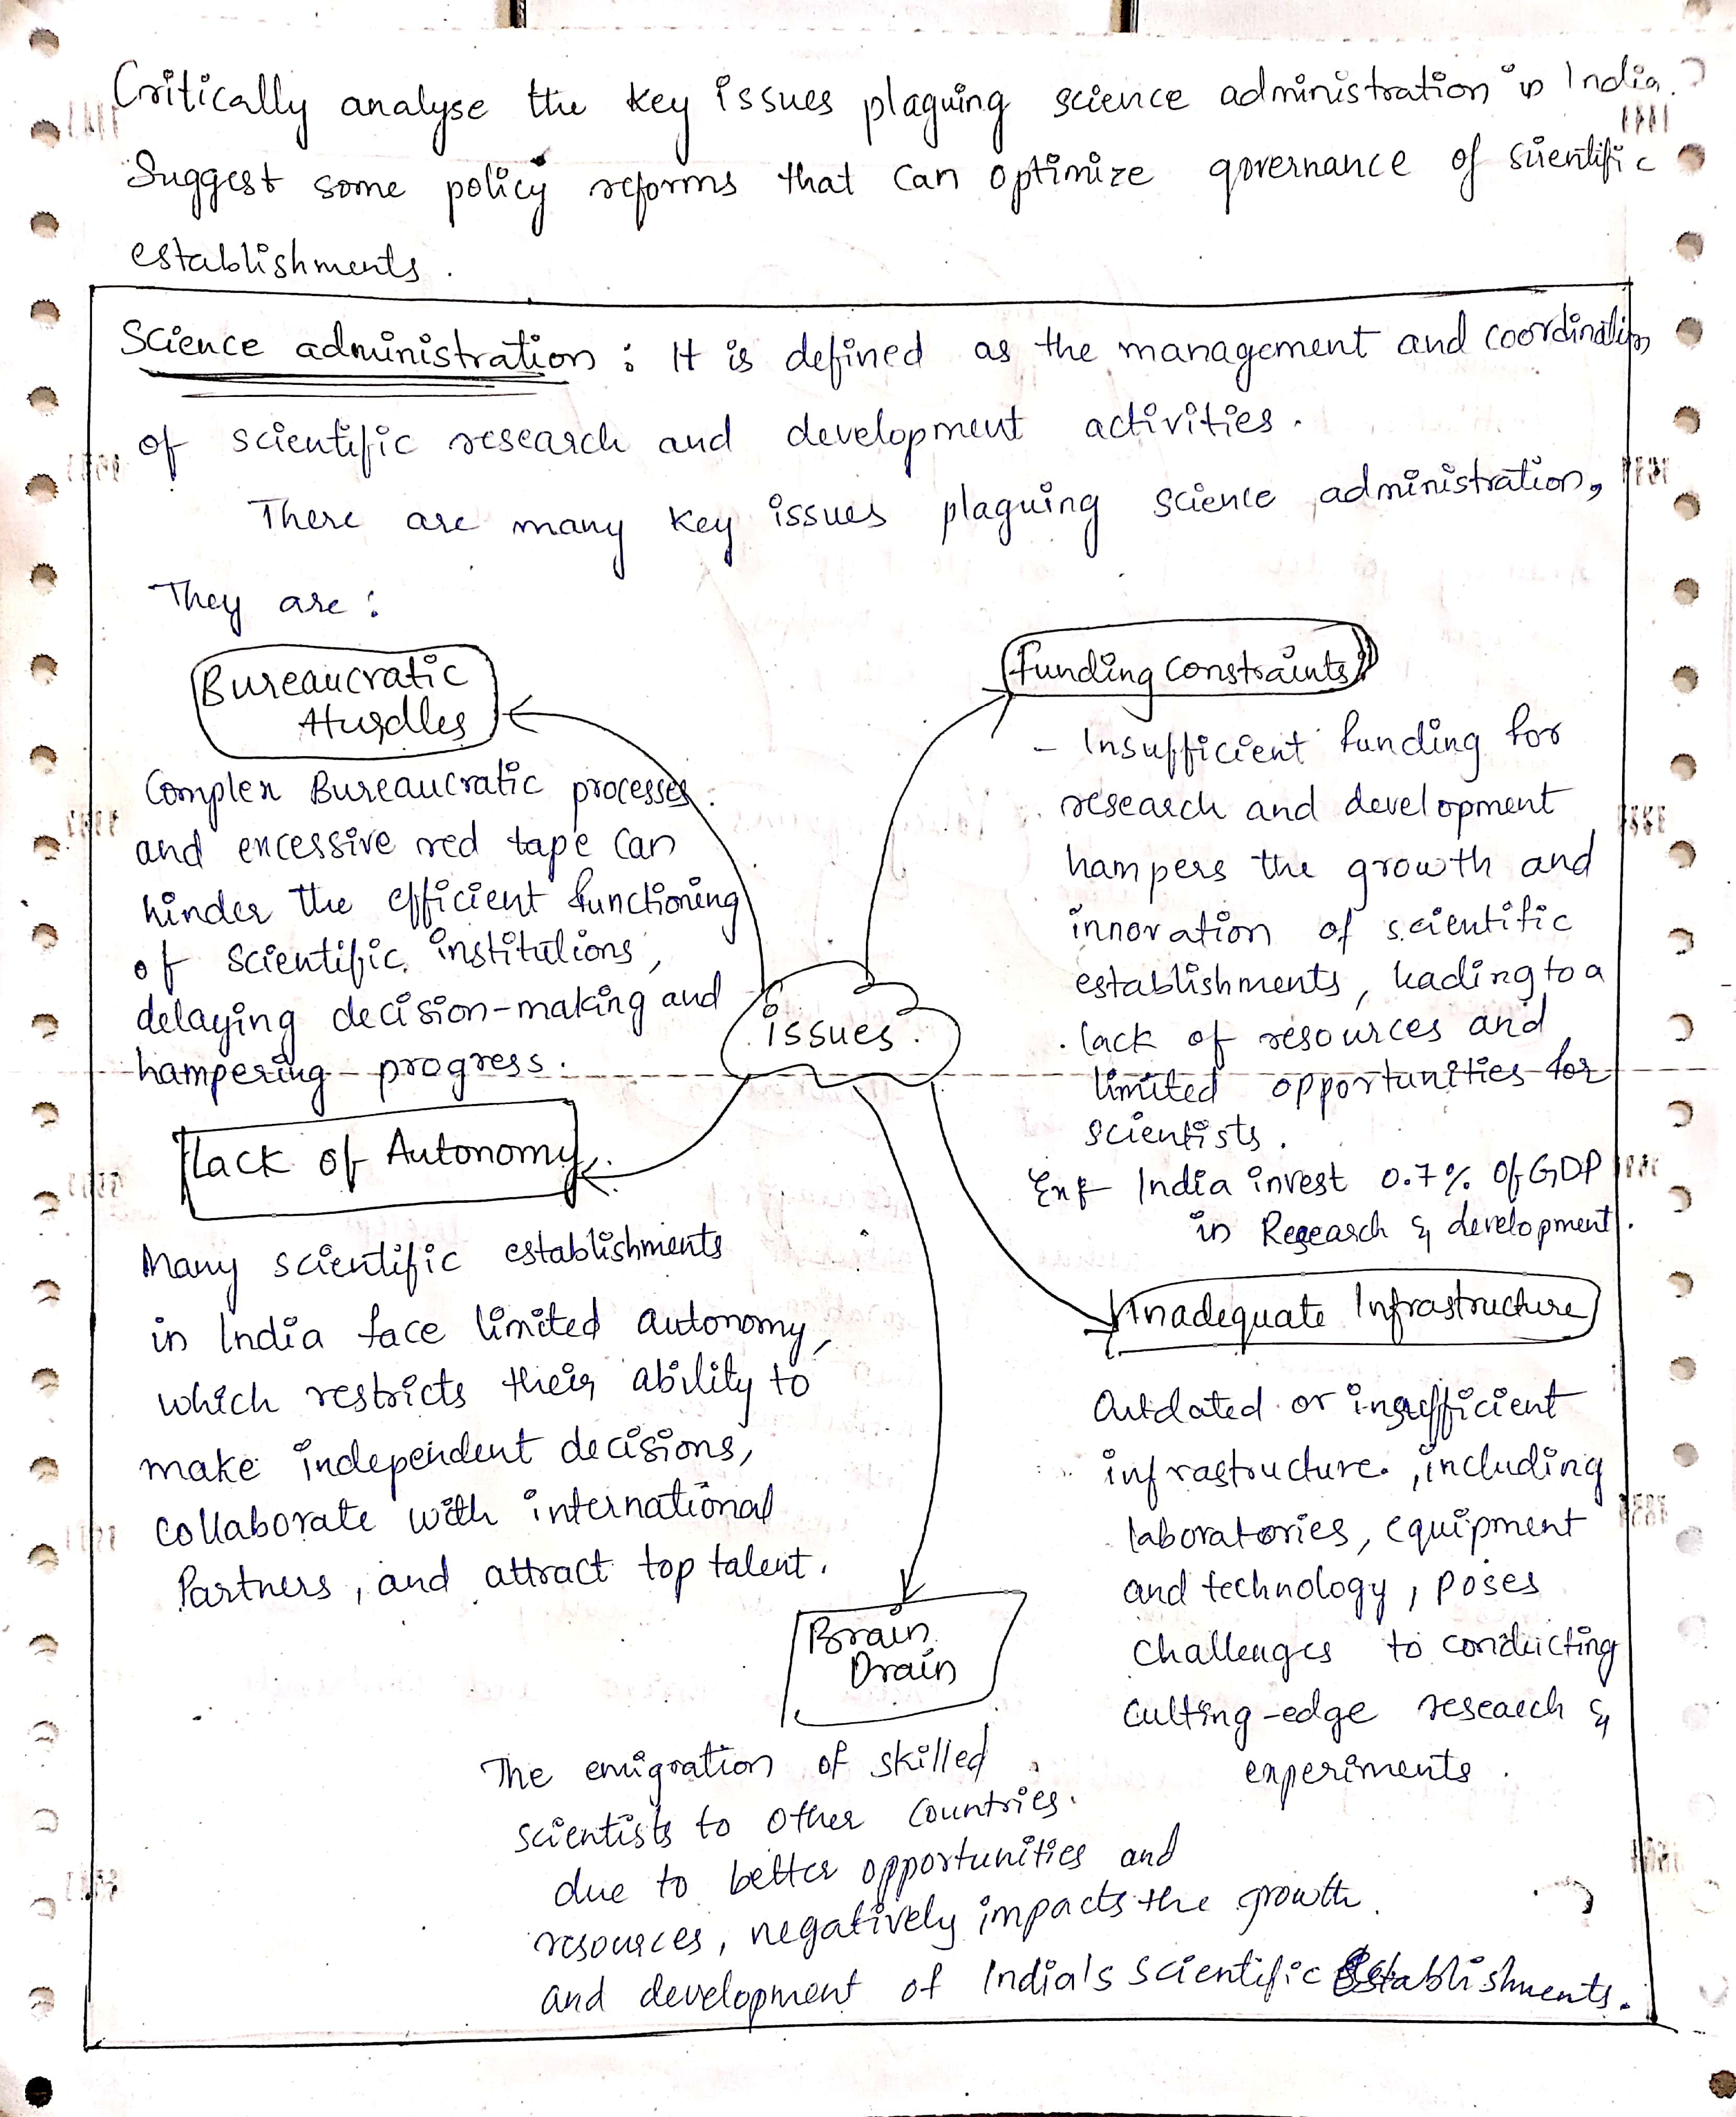 Critically analyse the key issues plaguing science administration in India.
Suggest some policy reforms that can optimize governance of scientific
establishments.
Science administration : It is defined as the management and coordination
of scientific research and development activities.
There are many key issues plaguing science administration,
They are :
Bureaucratic
Hurdles
Complex Bureaucratic processes
and excessive red tape can
hinder the efficient functioning
of scientific institutions,
delaying decision-making and
hampering progress.
Funding Constraints
- Insufficient funding for
research and development
hampers the growth and
innovation of scientific
establishments, leading to a
lack of resources and
limited opportunities for
scientists.
India invest 0.7% of GDP
in Research & development.
issues
Lack of Autonomy
Many scientific establishments
in India face limited autonomy,
which restricts their ability to
make independent decisions,
collaborate with international
Partners, and attract top talent.
Inadequate Infrastructure
Outdated or insufficient
infrastructure, including
laboratories, equipment
and technology, poses
challenges to conducting
cutting-edge research &
experiments.
Brain
Drain
The emigration of skilled
scientists to other countries.
due to better opportunities and
resources, negatively impacts the growth
and development of India's scientific Establishments.